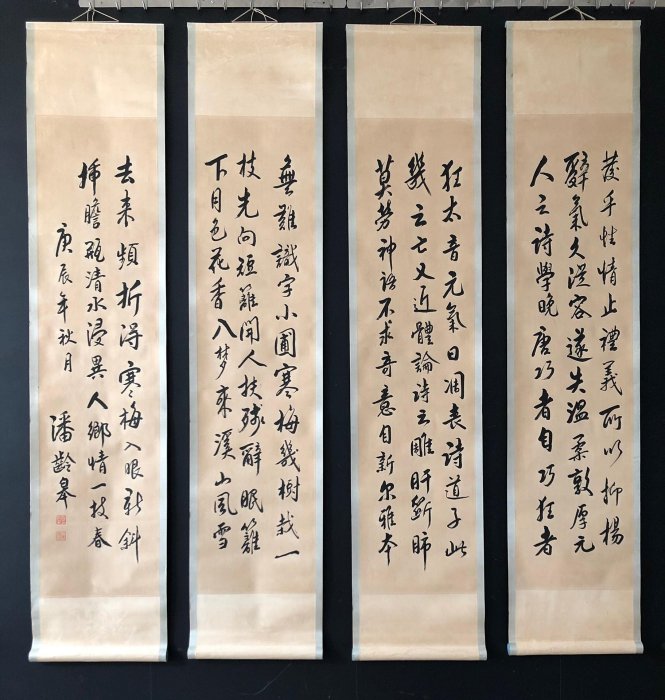 發乎性情止禮義所以抑揚
辭氣久從容遂失溫柔敦厚元
人之詩學晚唐巧者自巧狂者
狂太音元氣日凋喪詩道子此
幾云七又近體論詩云雕肝斵肺
莫勞神語不求奇意自新尔雅本
無難識字小圃寒梅幾樹栽一
枝先向短籬開人扶殘醉眠籬
下月色花香入夢來溪山風雪
去來頻折得寒梅入眼新斜
插膽瓶清水浸異人鄉情一枝春
庚辰年秋月
潘齡皋